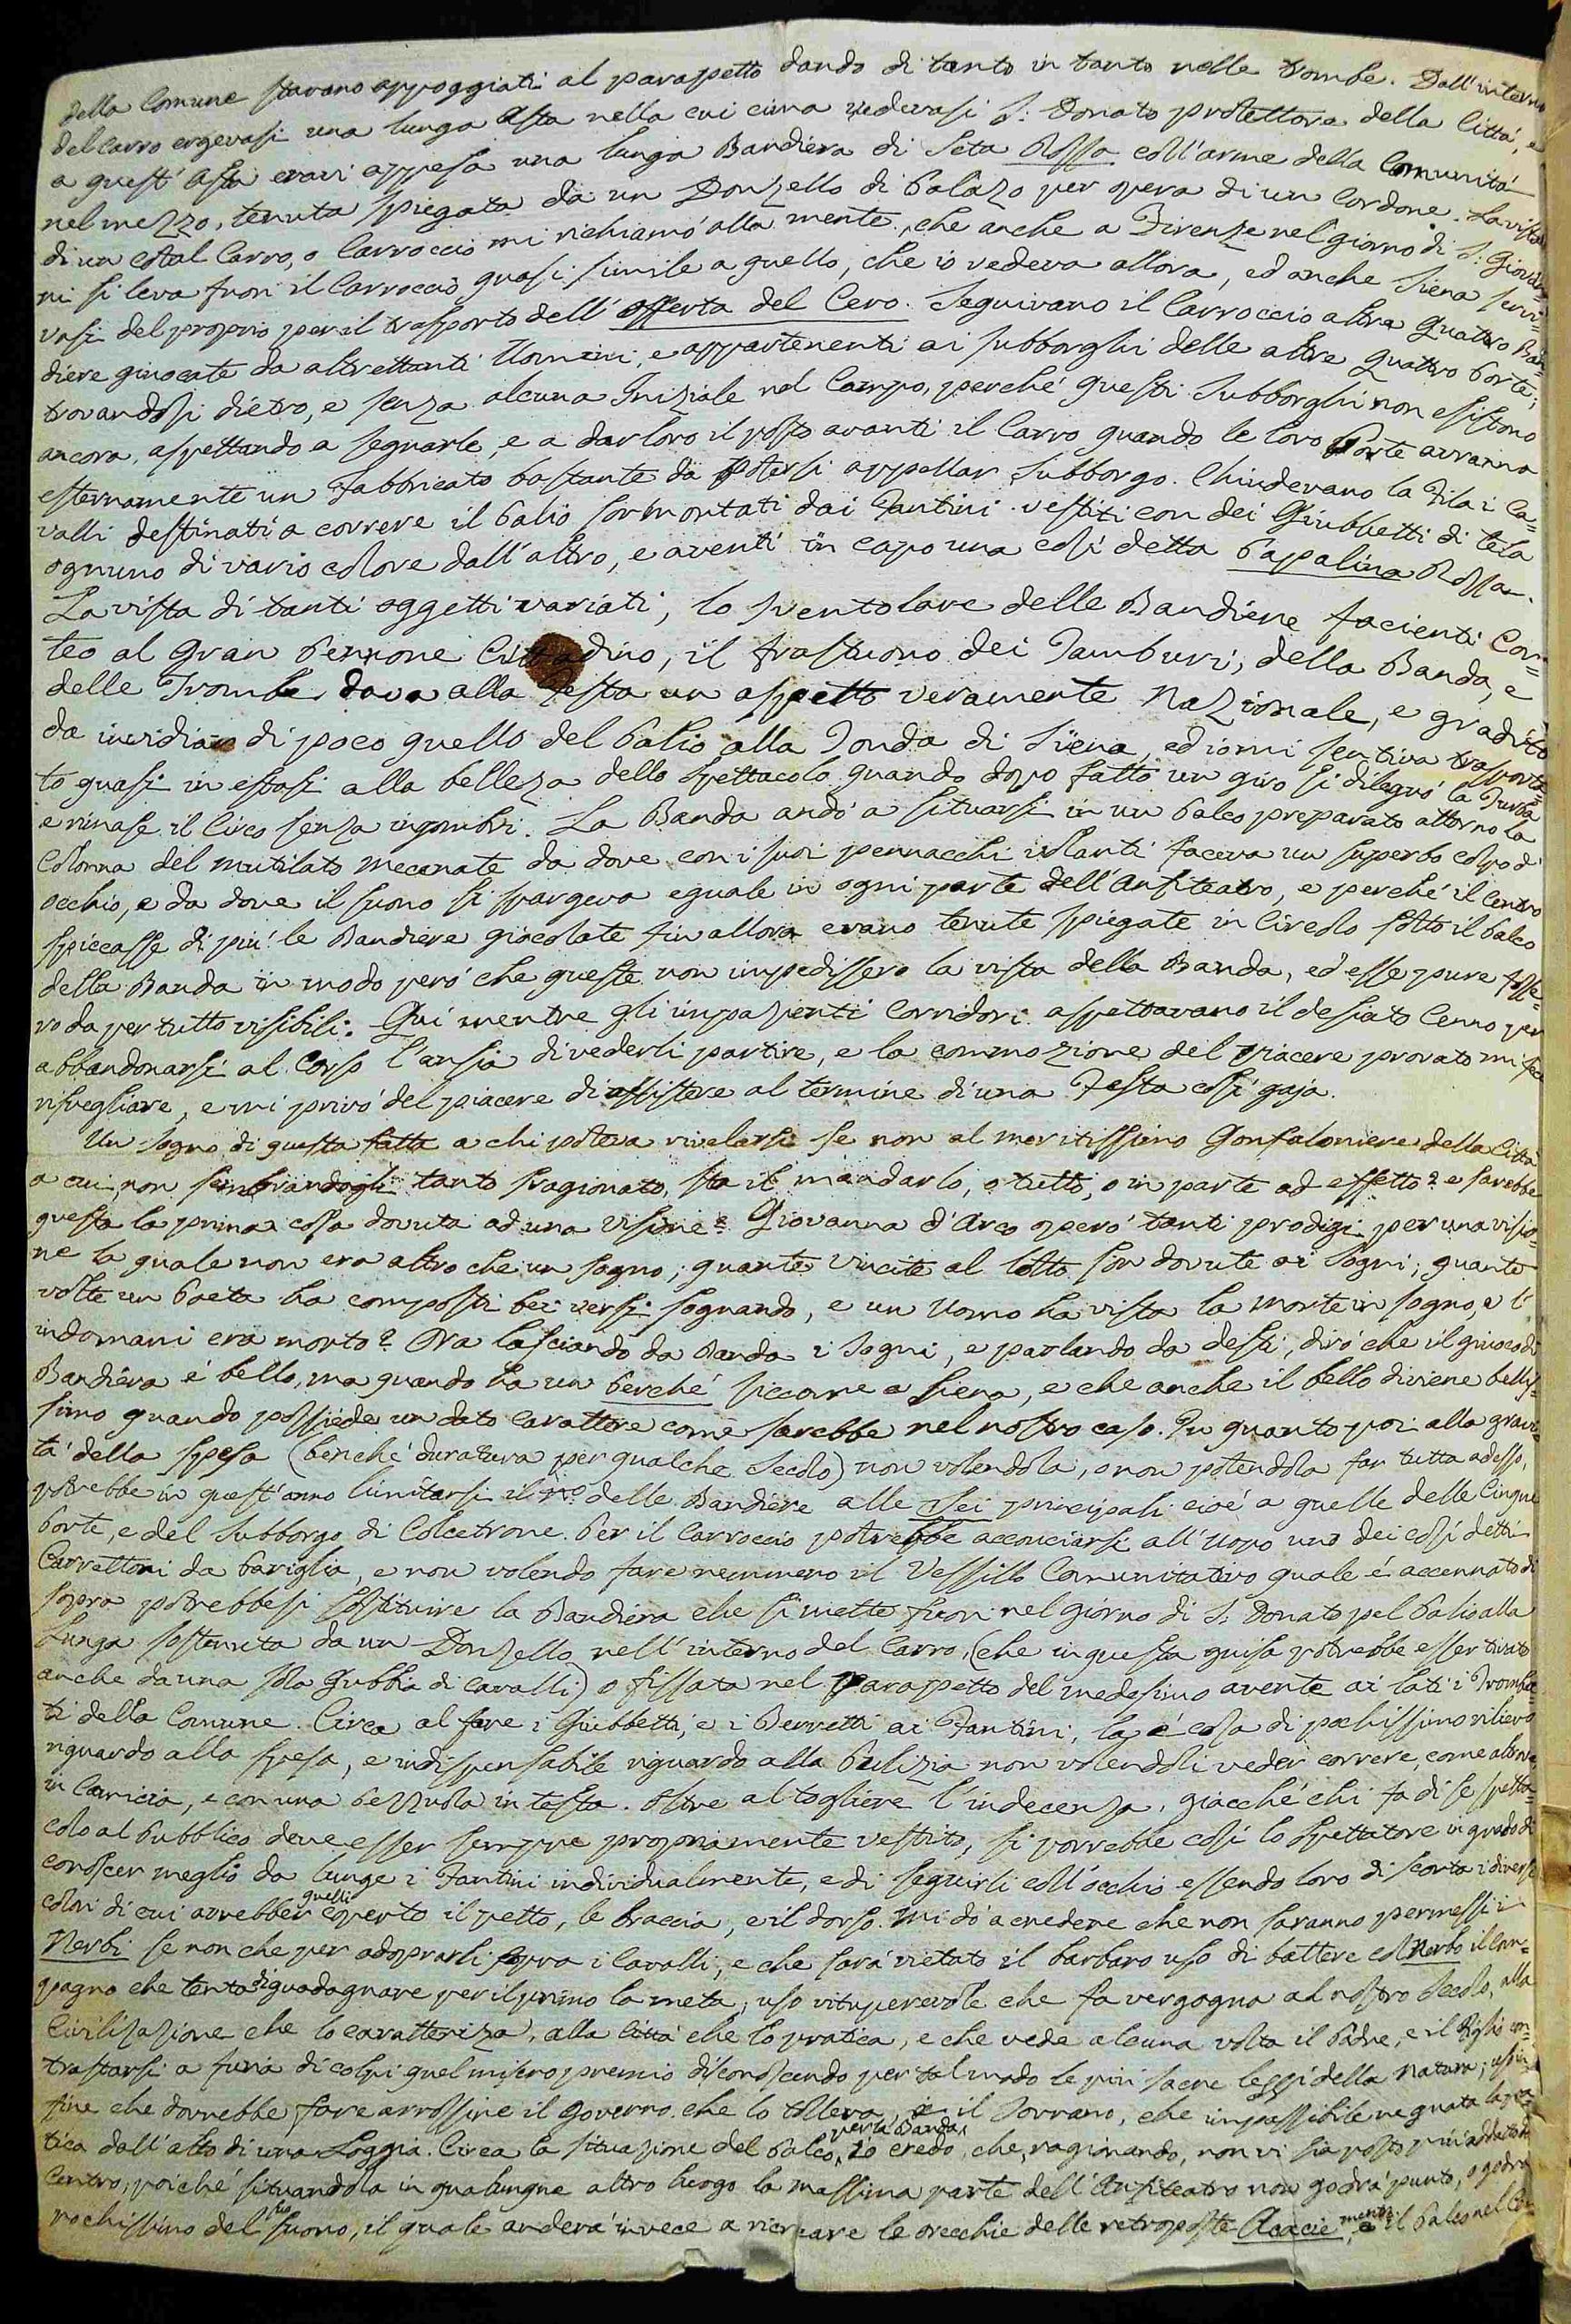 della Comune stavano appoggiati al parapetto dando di tanto in tanto nelle trombe. Dall'interno
del Carro ergevasi una lunga Asta nella cui cima vedevasi S. Donato protettore della Città, e
a quest'Asta eravi appesa una lunga Bandiera di Seta Rossa coll'arme della Comunità
nel mezzo, tenuta spiegata da un Donzello di Palazo per opera di un Cordone. La vista
di un cotal Carro, o Carroccio mi richiamò alla mente, che anche a Firenze nel giorno di S. Giovan=
ni si leva fuori il Carroccio quasi simile a quello, che io vedeva allora, ed anche Siena servi=
vasi del proprio per il trasporto dell'offerta del Cero. Seguivano il Carroccio altre quattro Ban=
diere giuocate da altrettanti Uomini, e appartenenti ai subborghi delle altre quattro Porte;
trovandosi dietro, e senza alcuna Iniziale nel Campo, perché questi Subborghi non esistono
ancora, aspettando a segnarle, e a dar loro il posto avanti il Carro quando le loro Porte avranno
esternamente un Fabbricato bastante da potersi appellar Subborgo. Chiudevano la Fila i Ca=
valli destinati a correre il Palio sormontati dai Fantini vestiti con dei Giubbetti di tela
ognuno di vario colore dall'altro, e aventi in capo una così detta Papalina Rossa.
La vista di tanti oggetti variati, lo sventolare delle Bandiere facienti Cor=
teo al Gran Pennone Cittadino, il frastuono dei Tamburi, della Banda, e
delle Trombe dava alla Festa un aspetto veramente Nazionale, e gradito
da invidiare di poco quello del Palio alla Tonda di Siena, ed io mi sentiva trasporta=
to quasi in estasi alla belleza dello Spettacolo quando dopo fatto un giro si dileguò la Turba
e rimase il Circo senza ingombri. La Banda andò a situarsi in un Palco preparato attorno la
Colonna del mutilato Mecenate da dove con i suoi pennacchi volanti faceva un superbo colpo d'
occhio, e da dove il suono si spargeva eguale in ogni parte dell'Anfiteatro, e perché il Centro
spiccasse di più le Bandiere giocolate fin allora erano tenute spiegate in Circolo sotto il Palco
della Banda in modo però che queste non impedissero la vista della Banda, ed esse pure fosse=
ro da per tutto visibili. Quì mentre gli impazienti Corridori aspettavano il desiato Cenno per
abbandonarsi al Corso l'ansia di vederli partire, e la commozione del piacere provato mi fece
risvegliare, e mi privò del piacere di assistere al termine di una Festa così gaja.
Un Sogno di questa fatta a chi poteva rivelarsi se non al meritissimo Gonfaloniere della Città
a cui, non sembrandogli tanto sragionato, sta il mandarlo, o tutto, o in parte ad effetto? e sarebbe
questa la prima cosa dovuta ad una visione? Giovanna d'Arco operò tanti prodigi per una visio=
ne la quale non era altro che un sogno; quante vincite al lotto son dovute ai Sogni; quante
volte un Poeta ha composti bei versi sognando, e un Uomo ha vista la morte in sogno, e l'
indomani era morto? Ora lasciando da Banda i Sogni, e parlando da desti, dirò che il giuoco di
Bandiera è bello, ma quando ha un Perché siccome a Siena, e che anche il bello diviene bellis=
simo quando possiede un dato Carattere come sarebbe nel nostro caso. In quanto poi alla gravi=
tà della spesa (benché duratura per qualche Secolo) non volendola, o non potendola far tutta adesso,
potrebbe in quest'anno limitarsi il no. delle Bandiere alle Sei principali cioè a quelle delle Cinque
Porte, e del Subborgo di Colcetrone. Per il Carroccio potrebbe acconciarsi all'uopo uno dei così detti
Carrettoni da Pariglia, e non volendo fare nemmeno il Vessillo Comunitativo quale è accennato di
sopra potrebbesi sostituire la Bandiera che si mette fuori nel giorno di S. Donato pel Palio alla
Lunga sostenuta da un Donzello nell'interno del Carro, (che in questa guisa potrebbe esser tirato
anche da una sola Gubbia di Cavalli) o fissata nel Parapetto del medesimo avente ai lati i Trombet=
ti della Comune. Circa al fare i Giubbetti, e i Berretti ai Fantini, la è cosa di pochissimo rilievo
riguardo alla spesa, e indispensabile riguardo alla Pulizia non volendoli veder correre, come altrove,
in Camicia, e con una Pezzuola in testa. Oltre al togliere l'indecenza, giacché chi fa di se spetta=
colo al Pubblico deve esser sempre propriamente vestito, si porrebbe così lo Spettatore in grado di
conoscer meglio da lunge i Fantini individualmente, e di seguirli coll'occhio essendo loro di scorta i diversi
colori di cui avrebber quelli coperto il petto, le braccia, e il dorso. Mi dò a credere che non saranno permessi i
Nerbi se non che per adoprarli sopra i Cavalli, e che sarà vietato il barbaro uso di battere col Nerbo il Com=
pagno che tenta di guadagnare per il primo la meta, uso vituperevole che fa vergogna al nostro Secolo, alla
Civilizazione che lo caratteriza, alla Città che lo pratica, e che vede alcuna volta il Padre, e il Figlio con=
trastarsi a furia di colpi quel misero premio disconoscendo per tal modo le più sacre leggi della natura; uso in
fine che dovrebbe fare arrossire il Governo che lo tollera, e il Sovrano, che impassibile ne guata la pra=
tica dall'alto di una Loggia. Circa la situazione del Palco per la Banda, io credo, che, ragionando, non vi sia posto più adattato del
Centro, poiché situandola in qualunque altro luogo la massima parte dell'Anfiteatro non godrà punto, o godrà
pochissimo del suo suono, il quale anderà invece a ricreare le orecchie delle retroposte Acacie, mentre il Palco nel Cen